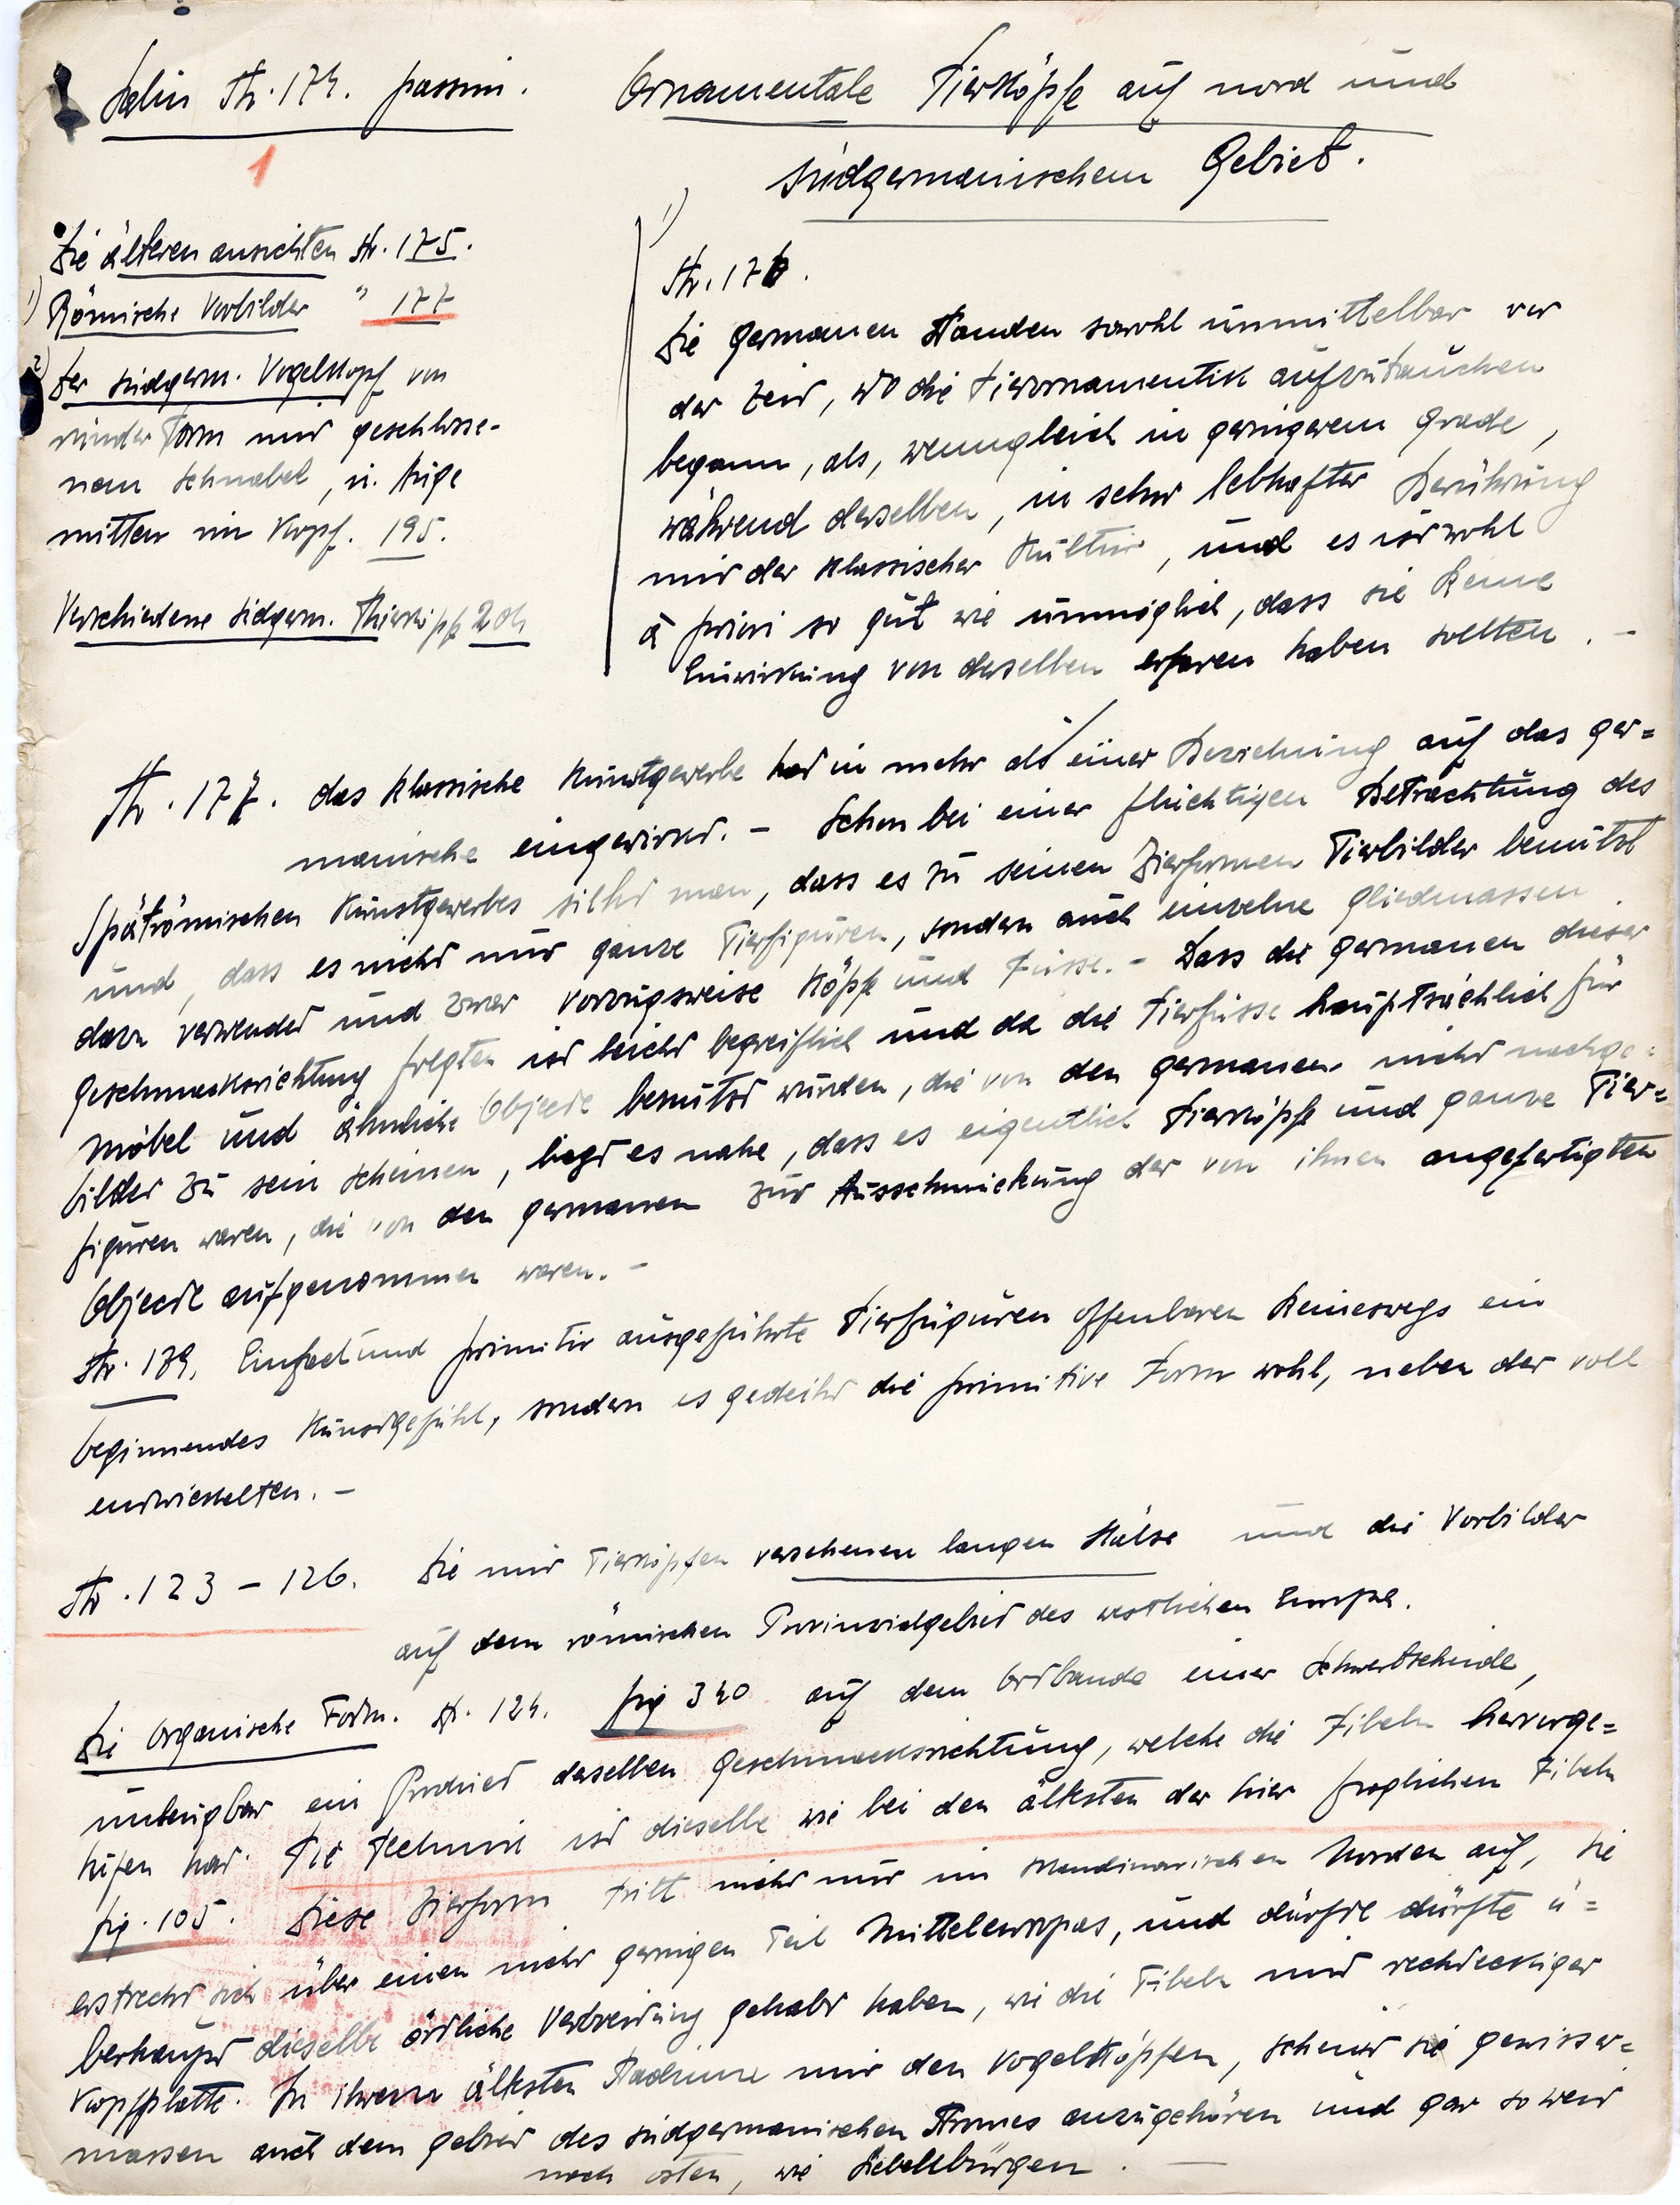 Salin Str. 174. passim.
1
Ornamentale Tierköpfe auf nord und
südgermanischem Gebiet.
Die älteren ansichten Str. 175.
1) Römische Vorbilder " 177
2) Der südgerm. Vogelkopf von
runder Form mit geschlosse-
nem Schnabel, u. Auge
mitten im Kopf. 195.
Verschiedene südgerm. Thierköpfe 204
1)
Str. 176.
Die Germanen standen sowohl unmittelbar vor
der Zeit, wo die Tierornamentik aufzutauchen
begann, als, wenngleich in geringerem Grade,
während derselben, in sehr lebhafter Berührung
mit der klassischer Kultur, und es ist wohl
à priori so gut wie unmöglich, dass sie keine
Einwirkung von derselben erfaren haben sollten. -
Str. 177. das klassische Kunstgewerbe hat in mehr als einer Beziehung auf das ger=
manische eingewirkt. - Schon bei einer flüchtigen Betrachtung des
Spätrömischen Kunstgewerbes sieht man, dass es zu seinen Zierformen Tierbilder benützt
und, dass es nicht nur ganze Tierfiguren, sondern auch einzelne Gliedmassen
dazu verwendet und zwar vorzugsweise Köpfe und Füsse. - Dass die Germanen dieser
Geschmacksrichtung folgten ist leicht begreiflich und da die Tierfüsse hauptsächlich für
Möbel und ähnliche Objecte benützt wurden, die von den Germanen nicht nachge=
bildet zu sein scheinen, liegt es nahe, dass es eigentlich Tierköpfe und ganze Tier=
figuren waren, die von den Germanen zur Ausschmückung der von ihnen angefertigten
Objecte aufgenommen waren. -
Str. 179. Einfach und primitiv ausgeführte Tierfiguren offenbaren keineswegs ein
beginnendes Kunstgefühl, sondern es gedeiht die primitive Form wohl, neben der voll
entwickelten. -
Str. 123 - 126. Die mit Tierköpfen versehenen langen Hälse und die Vorbilder
auf dem römischen Provinzialgebiet des westlichen Europa.
Die Organische Form. St. 124. fig 340 auf dem Ortbande einer Schwertscheide,
unleugbar ein Product derselben Geschmacksrichtung, welche die Fibeln hervorge=
rufen hat. Die Technik ist dieselbe wie bei den ältesten der hier fraglichen Fibeln
fig. 105. Diese Zierform tritt nicht nur im skandinavischen Norden auf, sie
erstreckt sich über einen nicht geringen Teil Mitteleuropas, und dürfte dürfte ü=
berhaupt dieselbe örtliche Verbreitung gehabt haben, wie die Fibeln mit rechteckiger
Kopfplatte. In ihrem ältesten Stadium mit den Vogelköpfen, scheint sie gewisser=
massen auch dem Gebiet des südgermanischen Stromes anzugehören und gar so weit
nach osten, wie Siebenbürgen. -